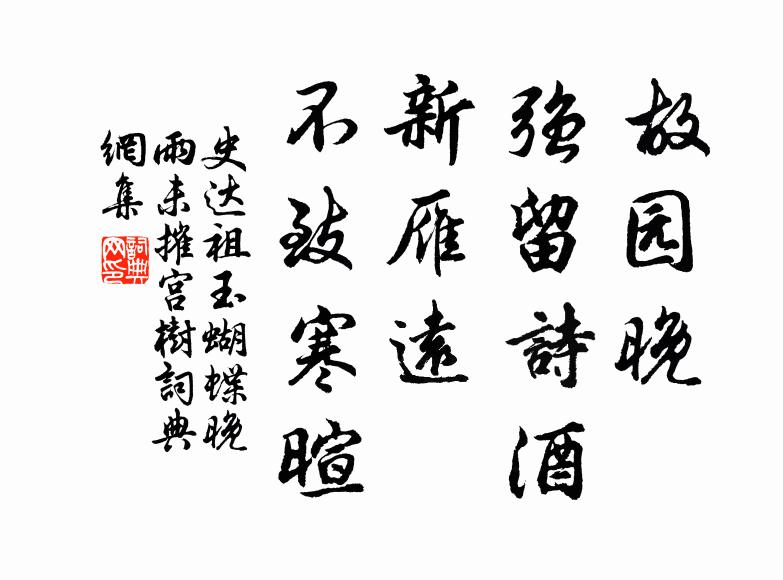 故园晚
强留詩酒
新雁遠
不致寒暄
史达祖玉蝴蝶晚
雨未摧宫樹詞典
網集
詞典网印